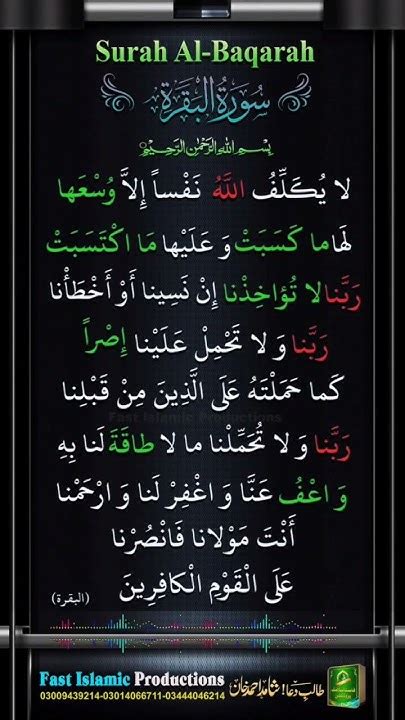 Surah Al-Baqarah
سُورَةُ الْبَقَرَةِ
بِسْمِ اللهِ الرَّحْمٰنِ الرَّحِيْمِ
لا يُكَلِّفُ اللَّهُ نَفْساً إِلاَّ وُسْعَها
لَها ما كَسَبَتْ وَ عَلَيْها مَا اكْتَسَبَتْ
رَبَّنا لا تُؤاخِذْنا إِنْ نَسِينا أَوْ أَخْطَأْنا
رَبَّنا وَ لا تَحْمِلْ عَلَيْنا إِصْراً
كَما حَمَلْتَهُ عَلَى الَّذِينَ مِنْ قَبْلِنا
Fast Islamic Productions
رَبَّنا وَ لا تُحَمِّلْنا ما لا طاقَةَ لَنا بِهِ
وَ اعْفُ عَنَّا وَ اغْفِرْ لَنا وَ ارْحَمْنا
أَنْتَ مَوْلانا فَانْصُرْنا
عَلَى الْقَوْمِ الْكافِرِينَ (البقرة)
Fast Islamic Productions
طالبِ دعا! شاہد احمد خان
03009439214-03014066711-03444046214